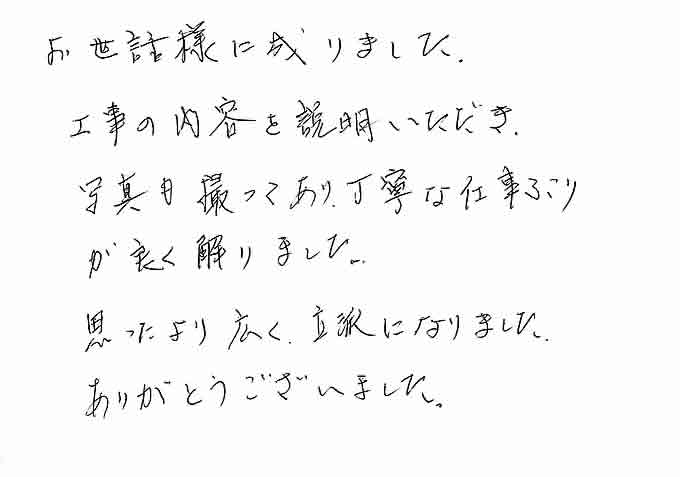 お世話様に成りました.
工事の内容を説明いただき.
写真も撮ってあり.丁寧な仕事ぶり
が良く解りました。
思ったより広く.立派になりました.
ありがとうございました。